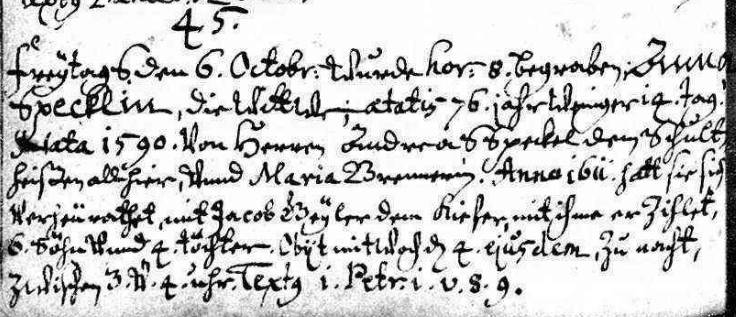 45.
Freytags den 6. Octobr: Wurde hor: 8. begraben, Anna
Specklin, die Wittwe, ætatis 76. jahr weniger 14. tag.
Nata 1590. Von Herren Andreas Speckel dem Schult
heissen allhier, Vnnd Maria Brennerin. Anno 1611. hatt sie sich
Verheurathet, mit Jacob Beyler dem Kiefer, mit ihme erzihlet,
6. Söhn Vnnd 4. töchter. Obijt mittwoch dē 4. ejusdem, Zu nacht,
Zwischen 3. V. 4. uhr. Textq 1. Petr: 1. v. 8. 9.